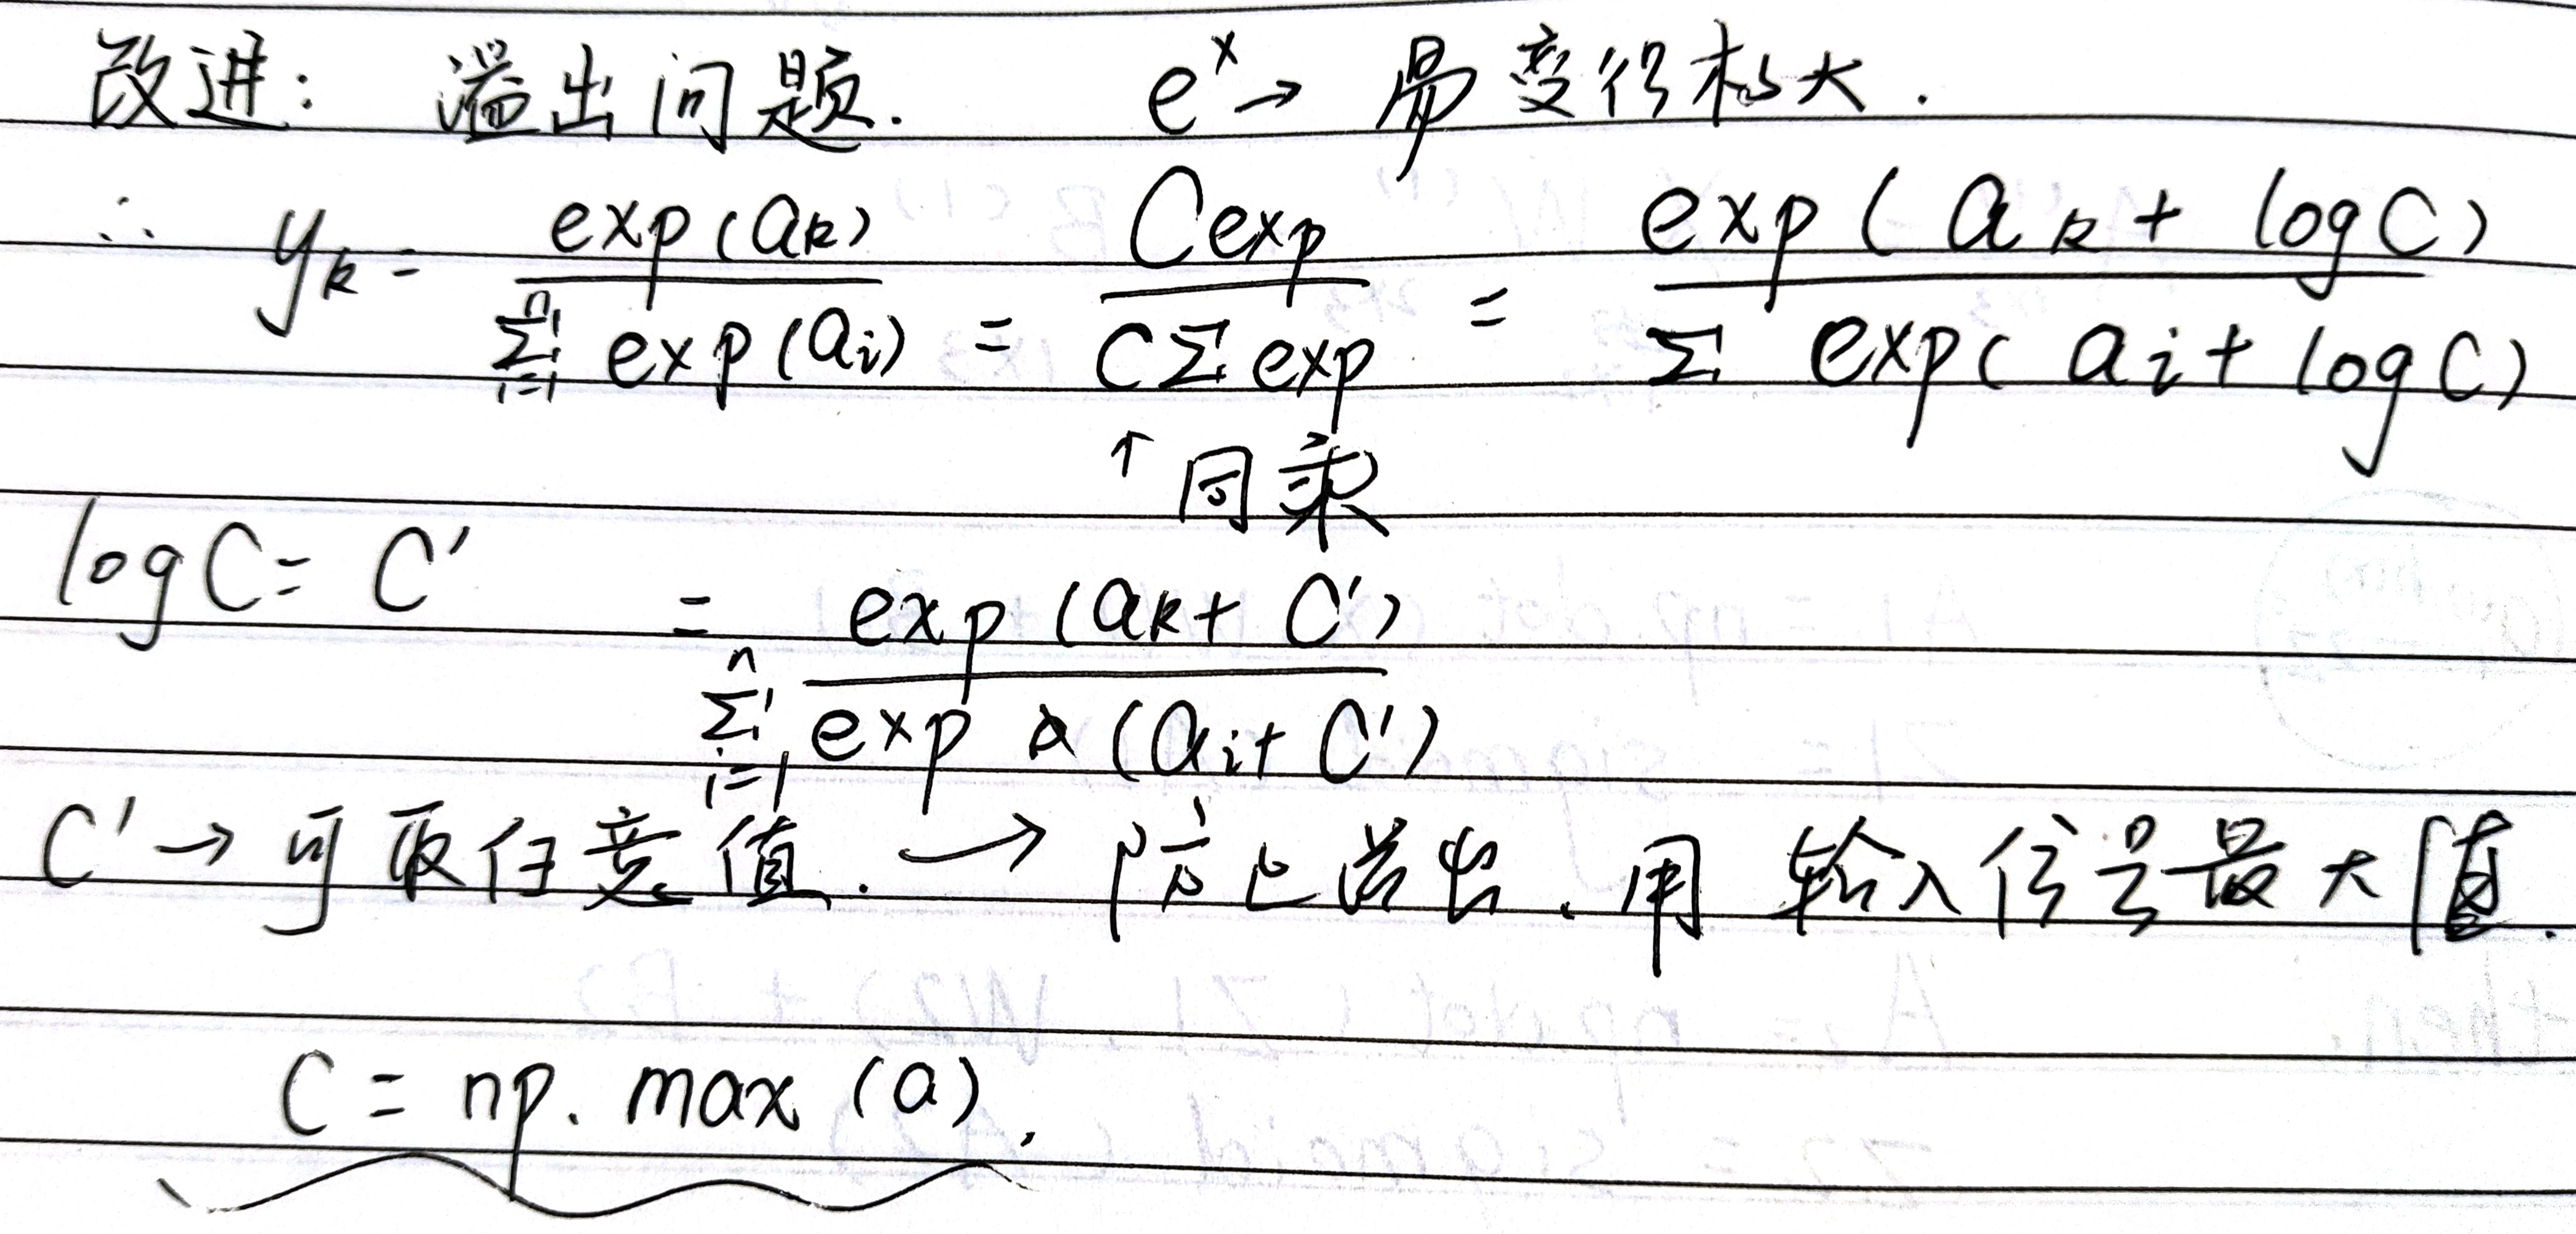 改进: 溢出问题. e^x → 易变得极大.
∴ y_k = exp(a_k) / Σ_{i=1}^{n} exp(a_i) = Cexp / CΣexp = exp(a_k + log C) / Σ exp(a_i + log C)
↑同乘
log C = C'
= exp(a_k + C') / Σ_{i=1}^{n} exp (a_i + C')
C' → 可取任意值. → 防止溢出、用 输入信号最大值.
C = np.max(a).